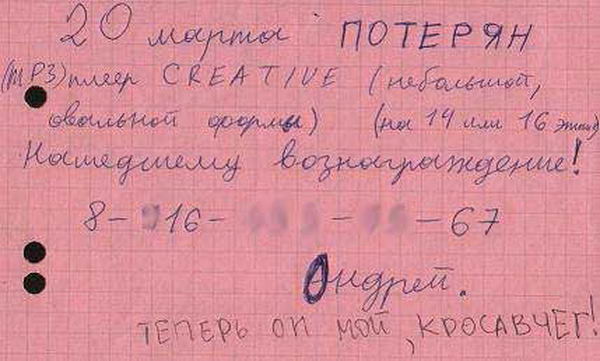 20 марта ПОТЕРЯН
(MP3) плеер CREATIVE (небольшой,
овальной формы) (на 14 или 16 этаж)
Нашедшему вознаграждение!
8- 916- - - 67
Андрей.
ТЕПЕРЬ ОН МОЙ, КРОСАВЧЕГ!